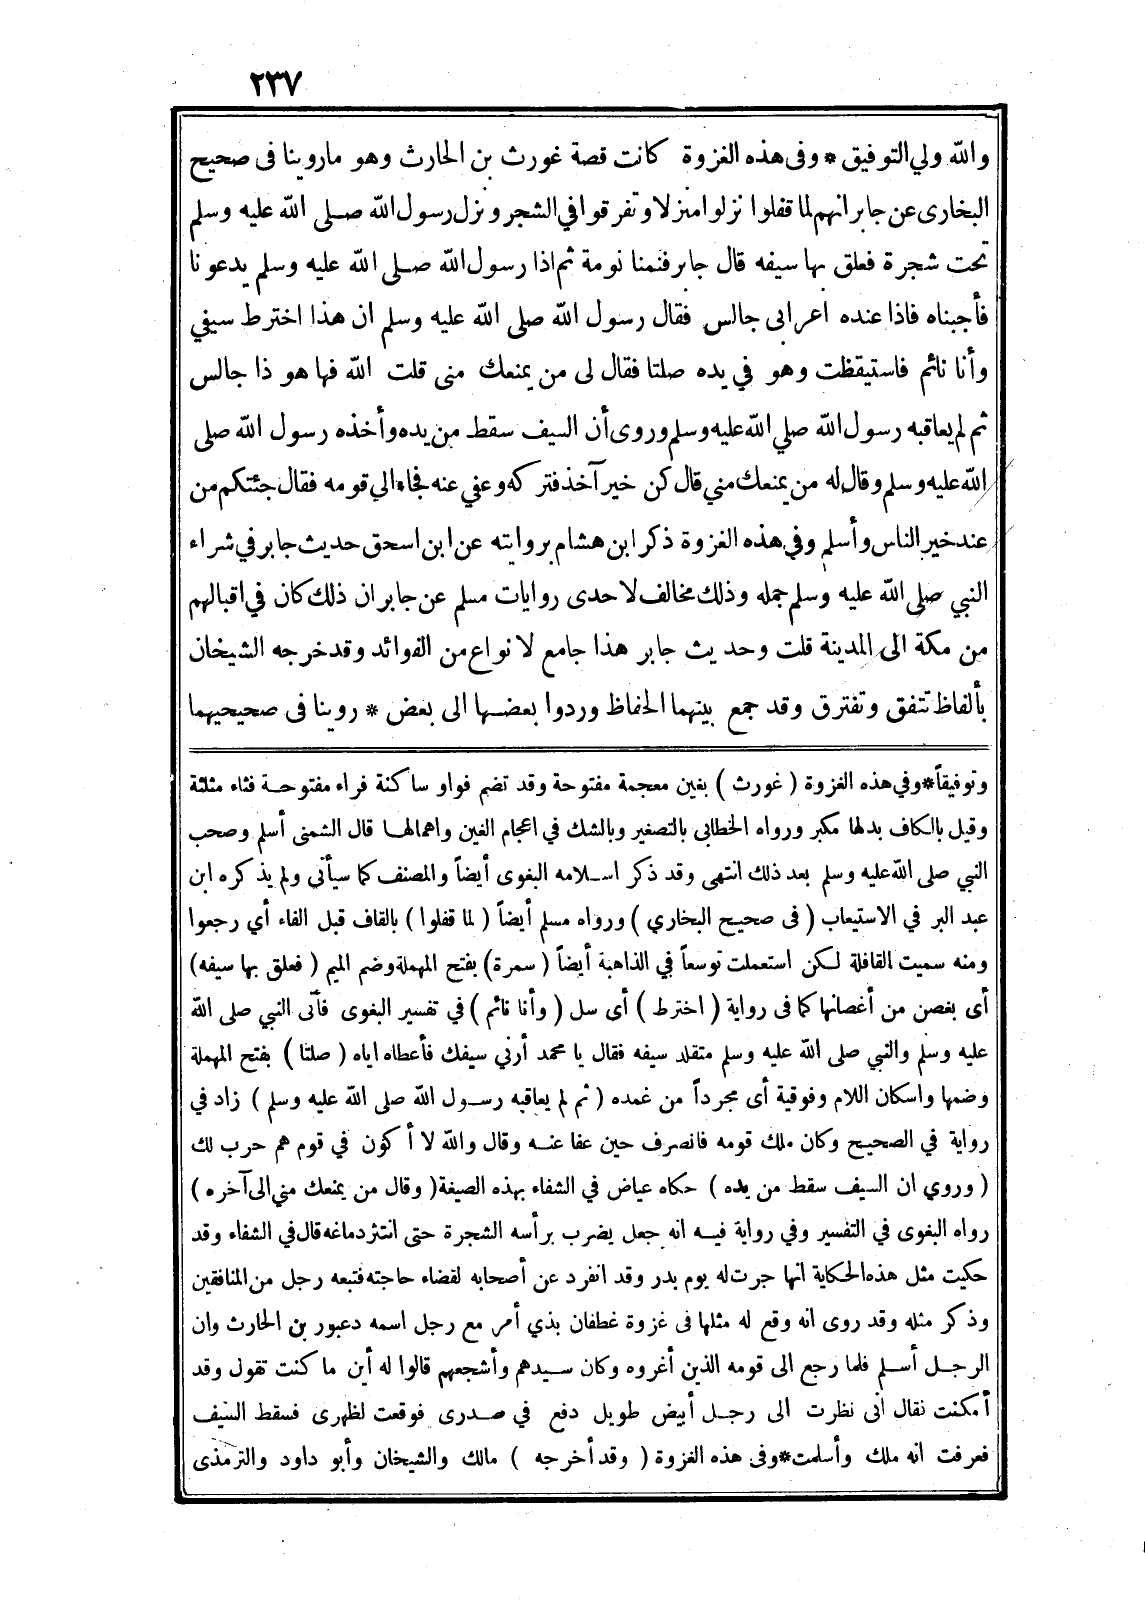 ٢٣٧
والله ولي التوفيق * وفى هذه الغزوة كانت قصة غورث بن الحارث وهو ماروينا فى صحيح
البخارى عن جابر انهم لما قفلوا نزلوا منزلا وتفرقوا في الشجر ونزل رسول الله صلى الله عليه وسلم
تحت شجرة فعلق بها سيفه قال جابر فنمنا نومة ثم اذا رسول الله صلى الله عليه وسلم يدعونا
فأجبناه فاذا عنده اعرابى جالس فقال رسول الله صلى الله عليه وسلم ان هذا اخترط سيفي
وأنا نائم فاستيقظت وهو في يده صلتا فقال لى من يمنعك منى قلت الله فها هو ذا جالس
ثم لم يعاقبه رسول الله صلي الله عليه وسلم وروى أن السيف سقط من يده وأخذه رسول الله صلى
الله عليه وسلم وقال له من يمنعك مني قال كن خير آخذ فتركه وعفي عنه فجاء الي قومه فقال جئتكم من
عند خير الناس وأسلم وفي هذه الغزوة ذكر ابن هشام بروايته عن ابن اسحق حديث جابر في شراء
النبي صلى الله عليه وسلم جمله وذلك مخالف لاحدى روايات مسلم عن جابر ان ذلك كان في اقبالهم
من مكة الى المدينة قلت وحديث جابر هذا جامع لانواع من الفوائد وقد خرجه الشيخان
بألفاظ تتفق وتفترق وقد جمع بينهما الحفاظ وردوا بعضها الى بعض * روينا فى صحيحيهما
وتوفيقاً*وفي هذه الغزوة ( غورث ) بغين معجمة مفتوحة وقد تضم فواو ساكنة فراء مفتوحة فثاء مثلثة
وقيل بالكاف بدلها مكبر ورواه الخطابى بالتصغير وبالشك في اعجام الغين واهمالها قال الشمنى أسلم وصحب
النبي صلى الله عليه وسلم بعد ذلك انتهى وقد ذكر اسلامه البغوى أيضاً والمصنف كما سيأتى ولم يذكره ابن
عبد البر في الاستيعاب ( فى صحيح البخاري ) ورواه مسلم أيضاً ( لما قفلوا ) بالقاف قبل الفاء أي رجعوا
ومنه سميت القافلة لكن استعملت توسعاً في الذاهبة أيضاً ( سمرة ) بفتح المهملة وضم الميم ( فعلق بها سيفه )
أى بغصن من أغصانها كما فى رواية ( اخترط ) أى سل ( وأنا نائم ) في تفسير البغوى فأتى النبي صلى الله
عليه وسلم والنبي صلى الله عليه وسلم متقلد سيفه فقال يا محمد أرني سيفك فأعطاه اياه ( صلتا ) بفتح المهملة
وضمها واسكان اللام وفوقية أى مجرداً من غمده ( ثم لم يعاقبه رسول الله صلى الله عليه وسلم ) زاد في
رواية في الصحيح وكان ملك قومه فانصرف حين عفا عنه وقال والله لا أكون في قوم هم حرب لك
( وروي ان السيف سقط من يده ) حكاه عياض في الشفاء بهذه الصيغة ( وقال من يمنعك مني الى آخره )
رواه البغوى في التفسير وفي رواية فيه انه جعل يضرب برأسه الشجرة حتى انتثر دماغه قال في الشفاء وقد
حكيت مثل هذه الحكاية انها جرت له يوم بدر وقد انفرد عن أصحابه لقضاء حاجته فتبعه رجل من المنافقين
وذكر مثله وقد روى انه وقع له مثلها فى غزوة غطفان بذي أمر مع رجل اسمه دعبور بن الحارث وان
الرجل أسلم فلما رجع الى قومه الذين أغروه وكان سيدهم وأشجعهم قالوا له أين ما كنت تقول وقد
أمكنت نقال انى نظرت الى رجل أبيض طويل دفع في صدرى فوقعت لظهرى فسقط السيف
فعرفت انه ملك وأسلمت*وفى هذه الغزوة ( وقد أخرجه ) مالك والشيخان وأبو داود والترمذى